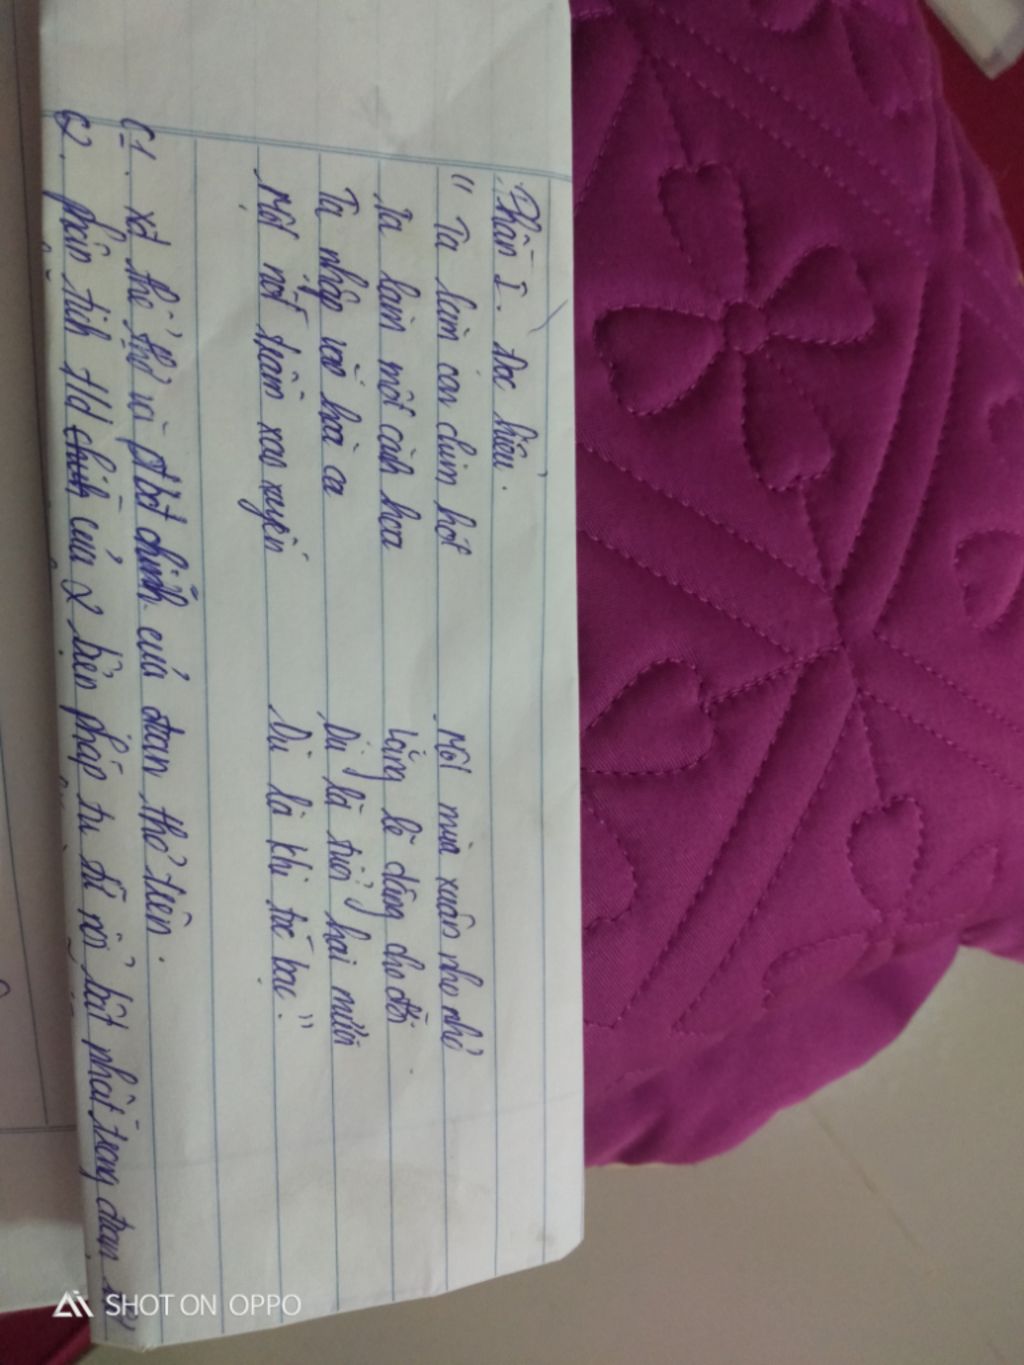 Phần I. Đọc hiểu.
" Ta làm con chim hót
Ta làm một cành hoa
Ta nhập vào hoà ca
Một nốt trầm xao xuyến
Một mùa xuân nho nhỏ
Lặng lẽ dâng cho đời
Dù là tuổi hai mươi
Dù là khi tóc bạc."
C1. xđ thể thơ và ptbđ chính của đoạn thơ trên.
C2. phân tích td của 2 biện pháp tu từ nổi bật nhất trong đoạn
SHOT ON OPPO